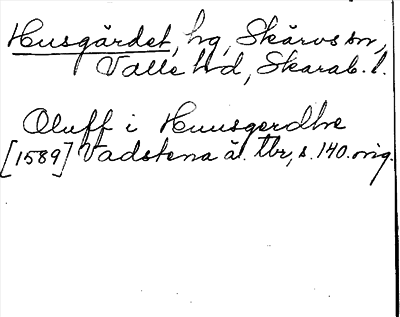 Husgärdet, hg, Skärvs sn,
Valle hd, Skarab. l.
Oluff i Huusgerdhe
[1589] Vadstena ä. tbr, s. 140. orig.